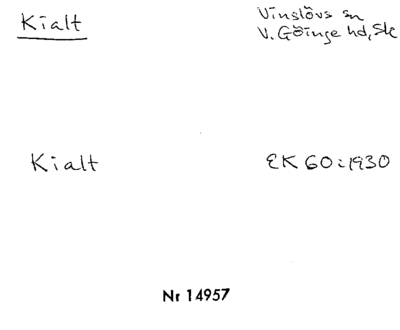 Kialt
Vinslövs sn
V. Göinge hd, Sk
Kialt
EK 60:1930
Nr 14957